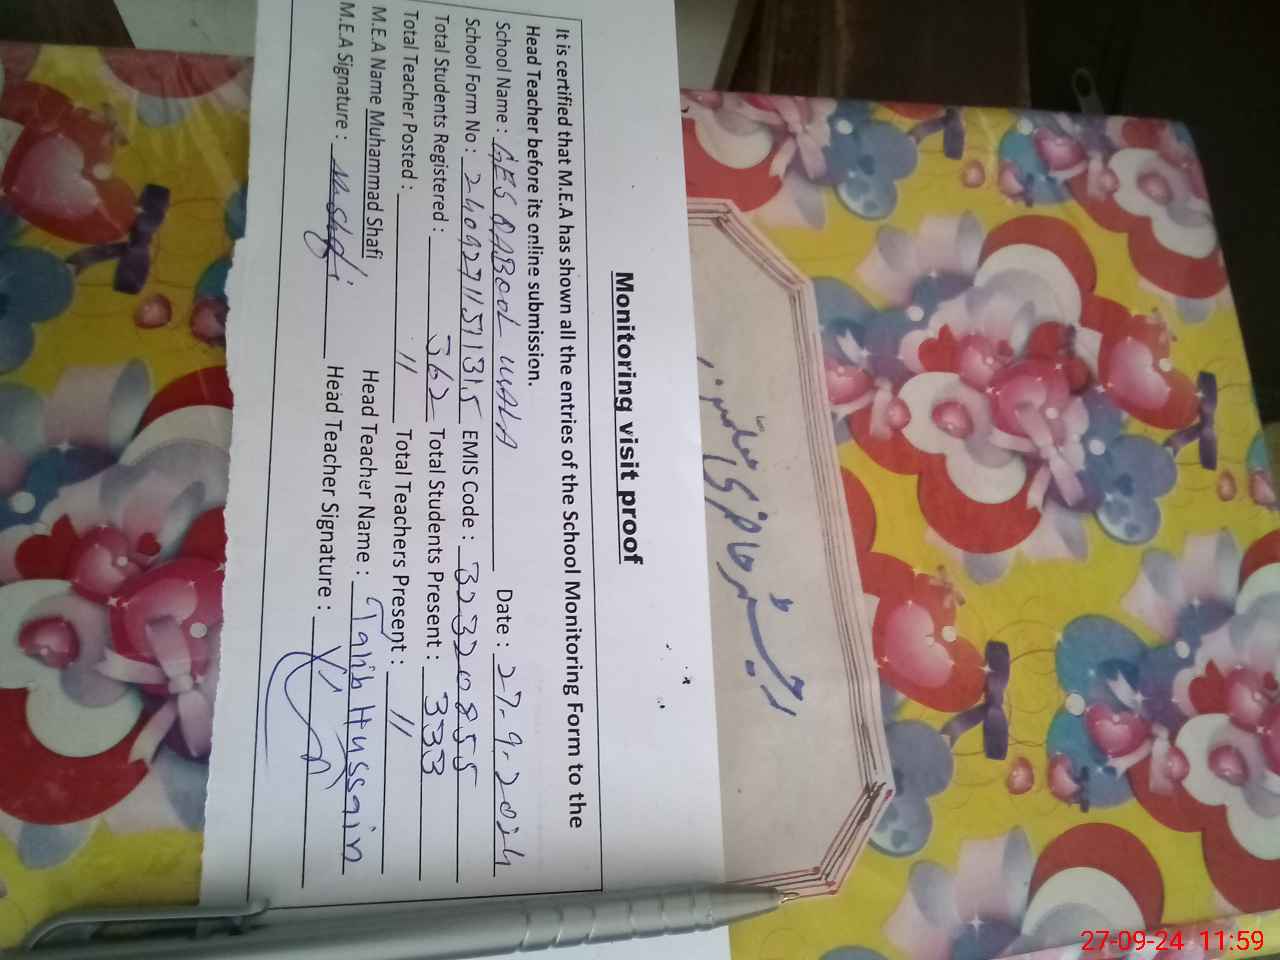 Monitoring visit proof
It is certified that M.E.A has shown all the entries of the School Monitoring Form to the
Head Teacher before its online submission.
School Name : GES QABOOL WALA Date : 27-9-2024
School Form No : EMIS Code : 33320855
Total Students Registered : 362 Total Students Present : 333
Total Teacher Posted : 11 Total Teachers Present : 11
M.E.A Name Muhammad Shafi Head Teacher Name : Talib Hussain
M.E.A Signature : M Shafi Head Teacher Signature :
رجسٹر حاضری معلمین
27-09-24 11:59